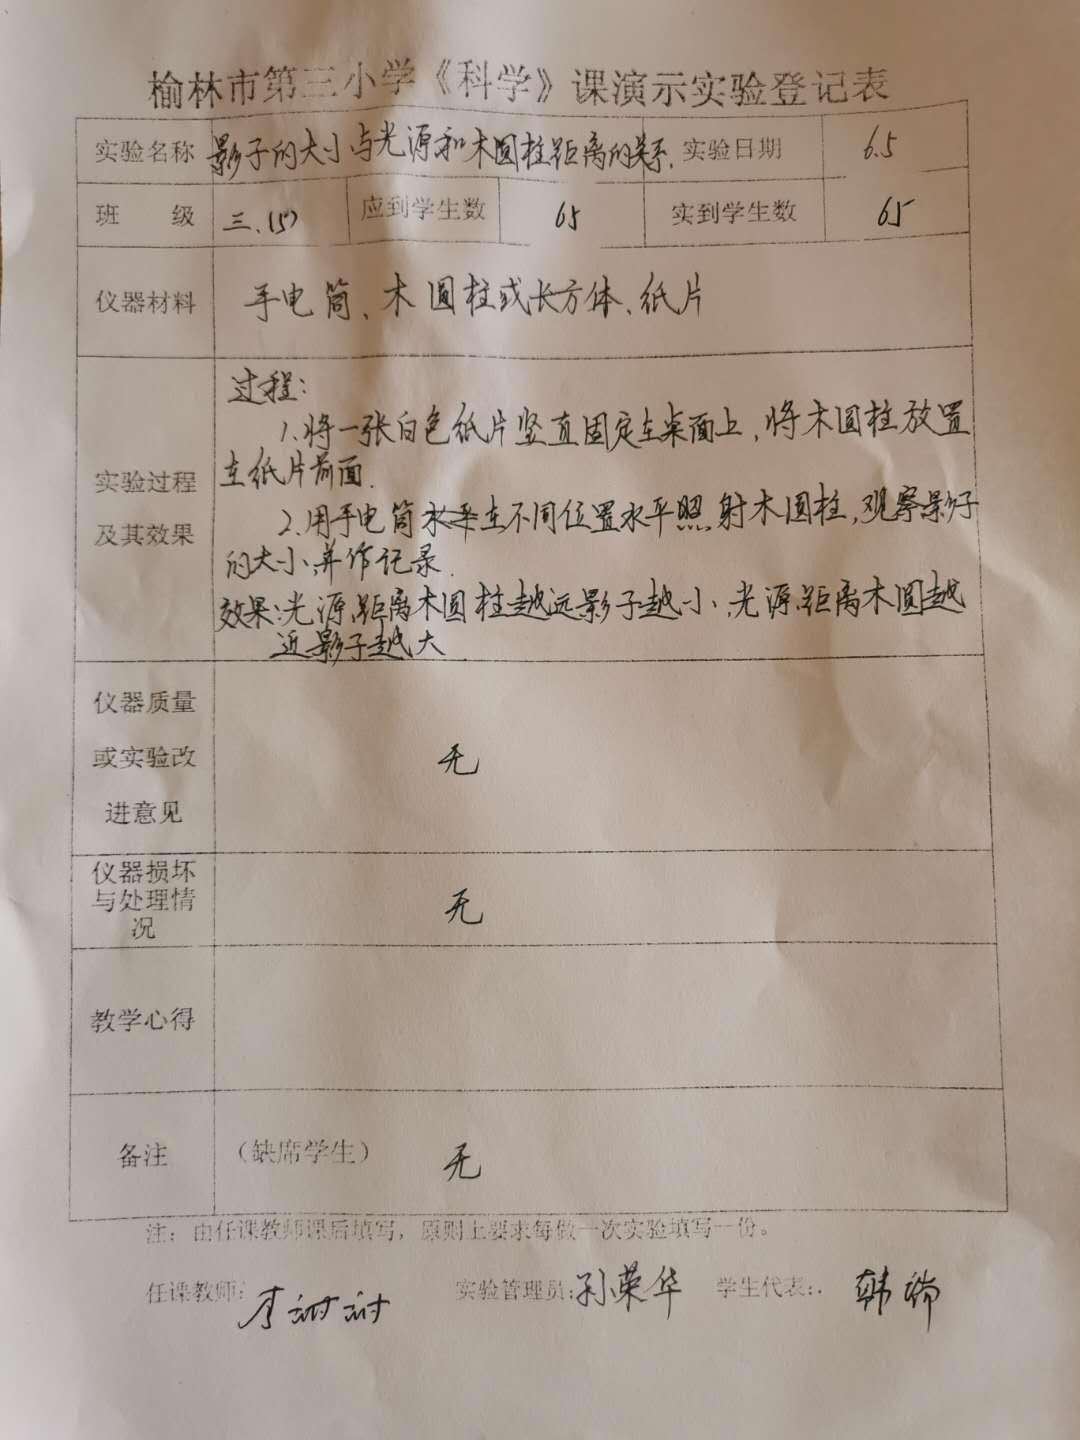 榆林市第三小学《科学》课演示实验登记表
实验名称 影子的大小与光源和木圆柱距离的关系. 实验日期 6.5
班 级 三.(5) 应到学生数 65 实到学生数 65
仪器材料 手电筒、木圆柱或长方体、纸片
过程:
1.将一张白色纸片竖直固定在桌面上,将木圆柱放置
在纸片前面.
实验过程
及其效果
2.用手电筒水平在不同位置水平照射木圆柱,观察影子
的大小,并作记录.
效果:光源距离木圆柱越远影子越小,光源距离木圆越
近影子越大
仪器质量
或实验改
进意见
无
仪器损坏
与处理情
况
无
教学心得
备注 (缺席学生) 无
注:由任课教师课后填写,原则上要求每做一次实验填写一份。
任课教师: 实验管理员:孙荣华 学生代表: 韩